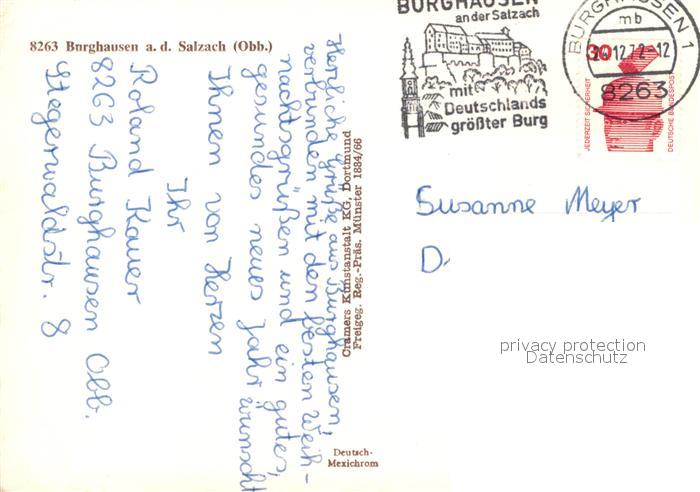 8263 Burghausen a. d. Salzach (Obb.)
Herzliche Grüße aus Burghausen,
verbunden mit den besten Weih-
nachtsgrüßen und ein gutes,
gesundes neues Jahr wünscht
Ihnen von Herzen
Ihr
Roland Kauer
8263 Burghausen Obb.
Stegerwaldstr. 8
Cramers Kunstanstalt KG, Dortmund
Freigeg. Reg.-Präs. Münster 1884/66
Deutsch-
Mexichrom
BURGHAUSEN
an der Salzach
mit
Deutschlands
größter Burg
BURGHAUSEN 1
mb
12.72-12
8263
30
JEDERZEIT SICHERHEIT
DEUTSCHE BUNDESPOST
Susanne Meyer
D.
privacy protection
Datenschutz